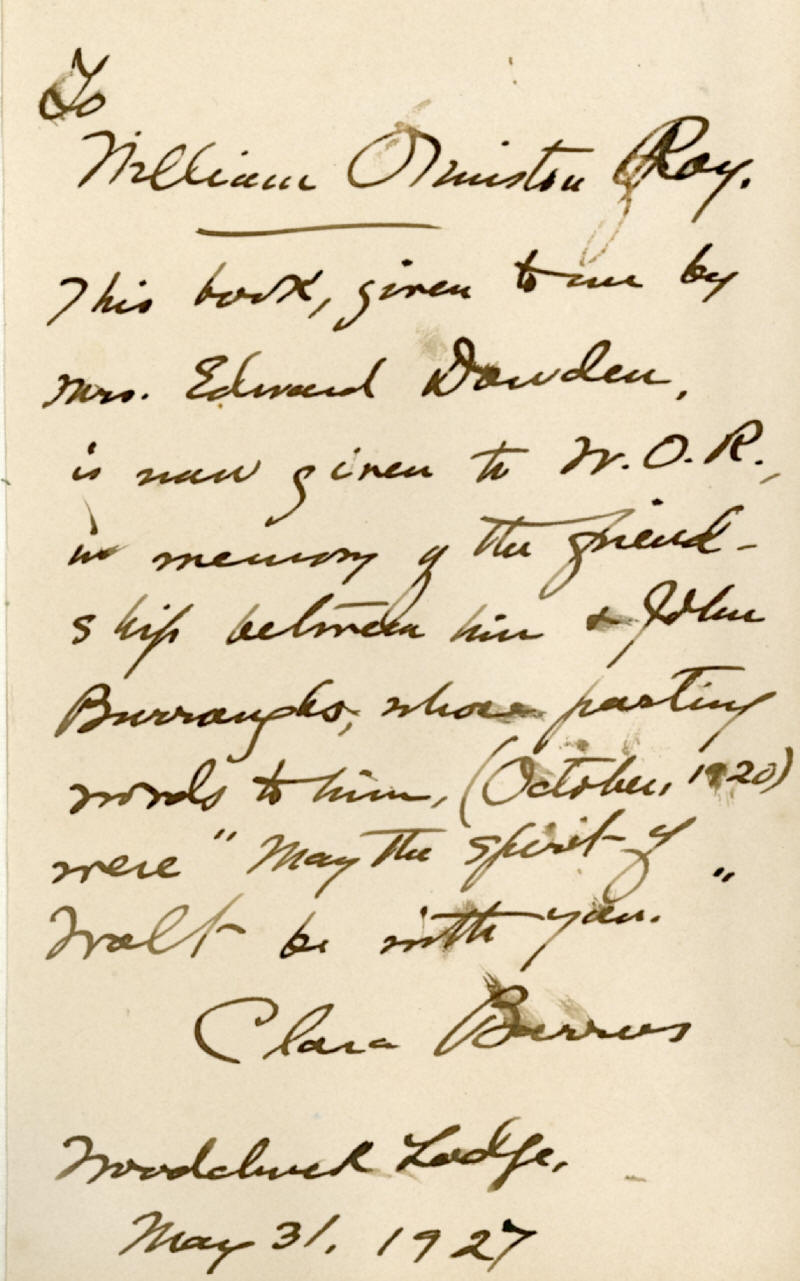 To
William Ormiston Roy.
This book, given to me by
Mrs. Edward Dowden,
is now given to W.O.R.,
in memory of the friend-
ship between him & John
Burroughs, whose parting
words to him, (October, 1920)
were "May the spirit of
Walt be with you."
Clara Barrus
Woodchuck Lodge,
May 31, 1927